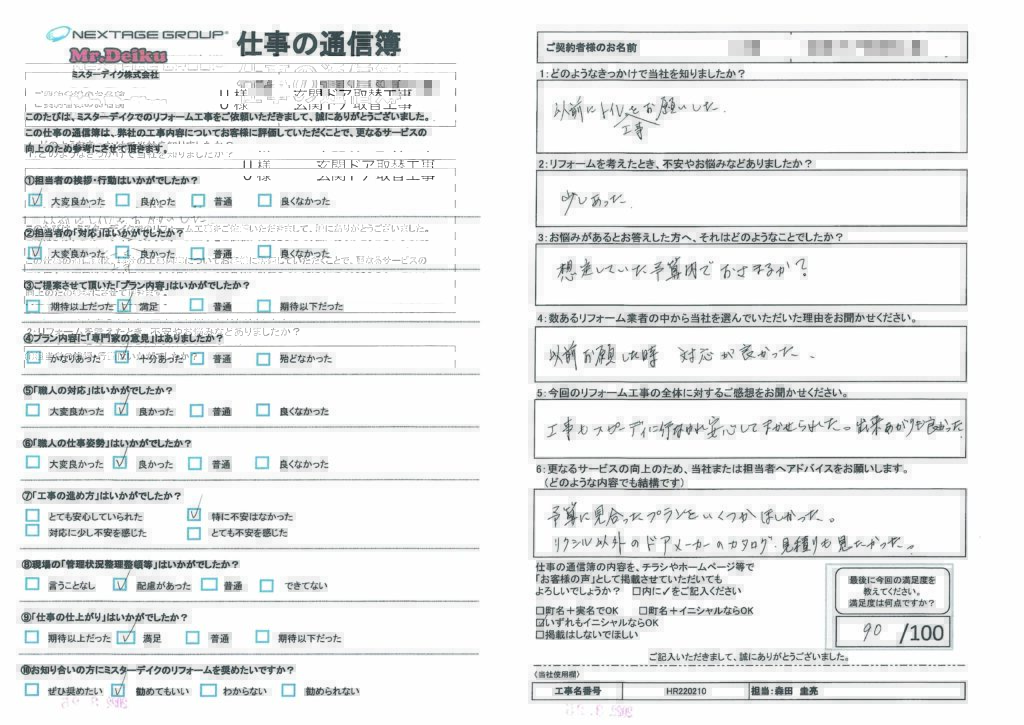 NEXTAGE GROUP
Mr.Deiku
ミスターデイク株式会社
仕事の通信簿
U様 玄関ドア取替工事
このたびは、ミスターデイクでのリフォーム工事をご依頼いただきまして、誠にありがとうございました。
この仕事の通信簿は、弊社の工事内容についてお客様に評価していただくことで、更なるサービスの
向上のため参考にさせて頂きます。
U様 玄関ドア取替工事
①担当者の挨拶・行動はいかがでしたか?
大変良かった 良かった 普通 良くなかった
②担当者の「対応」はいかがでしたか?
大変良かった 良かった 普通 良くなかった
③ご提案させて頂いた「プラン内容」はいかがでしたか?
期待以上だった 満足 普通 期待以下だった
④プラン内容に「専門家の意見」はありましたか?
かなりあった 十分あった 普通 殆どなかった
⑤「職人の対応」はいかがでしたか?
大変良かった 良かった 普通 良くなかった
⑥「職人の仕事姿勢」はいかがでしたか?
大変良かった 良かった 普通 良くなかった
⑦「工事の進め方」はいかがでしたか?
とても安心していられた 特に不安はなかった
対応に少し不安を感じた とても不安を感じた
⑧現場の「管理状況整理整頓等」はいかがでしたか?
言うことなし 配慮があった 普通 できてない
⑨「仕事の仕上がり」はいかがでしたか?
期待以上だった 満足 普通 期待以下だった
⑩お知り合いの方にミスターデイクのリフォームを奨めたいですか?
ぜひ奨めたい 勧めてもいい わからない 勧められない
ご契約者様のお名前
1:どのようなきっかけで当社を知りましたか?
以前にトイレをお願いした.
工事
2:リフォームを考えたとき、不安やお悩みなどありましたか?
少しあった.
3:お悩みがあるとお答えした方へ、それはどのようなことでしたか?
想定していた予算内でおさまるか?
4:数あるリフォーム業者の中から当社を選んでいただいた理由をお聞かせください。
以前お願した時 対応が良かった.
5:今回のリフォーム工事の全体に対するご感想をお聞かせください。
工事もスピーディに行なわれ安心してまかせられた。出来あがりも良かった
6:更なるサービスの向上のため、当社または担当者へアドバイスをお願いします。
(どのような内容でも結構です)
予算に見合ったプランをいくつかほしかった。
リクシル以外のドアメーカーのカタログ・見積りも見たかった。
仕事の通信簿の内容を、チラシやホームページ等で
「お客様の声」として掲載させていただいても
よろしいでしょうか? □内に✓をご記入ください
□町名+実名でOK □町名+イニシャルならOK
☑いずれもイニシャルならOK
□掲載はしないでほしい
最後に今回の満足度を
教えてください。
満足度は何点ですか?
90 /100
ご記入いただきまして、誠にありがとうございました。
(当社使用欄)
工事名番号 HR220210 担当:森田 圭亮